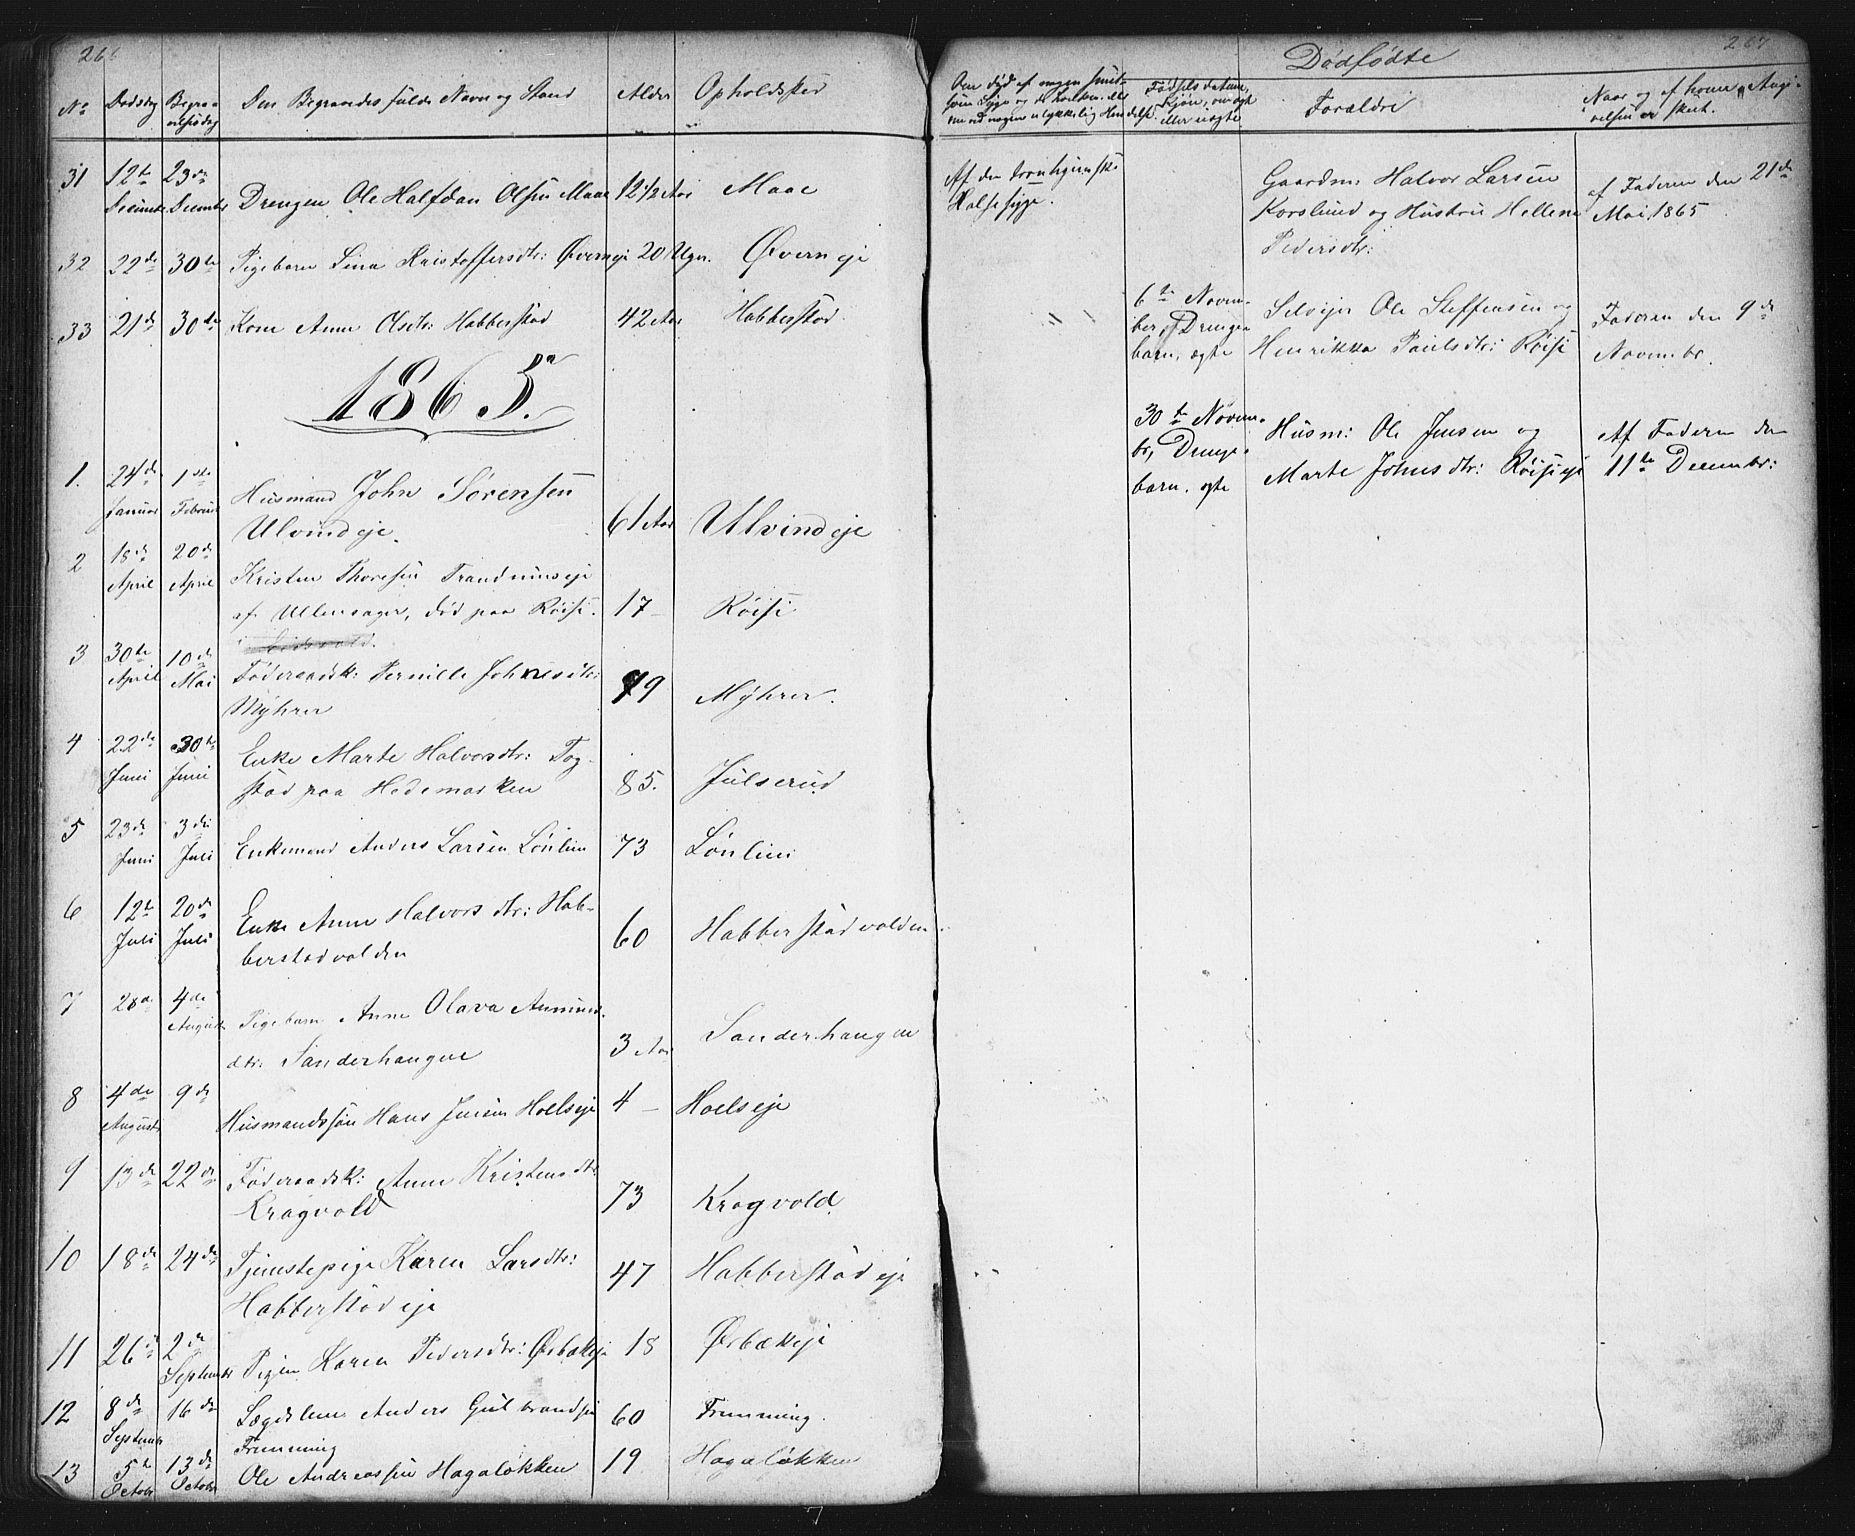 266
No Dødsdag Begravelsesdag Den Begravedes fulde Navn og Stand Alder Opholdssted
31 12te Decembr 23de Decembr Drengen Ole Halfdan Olsen Maae 12 1/2 Aar Maae
32 22de 30te Pigebarn Lina Kristoffersdtr: Øverneje 20 Uger. Øverneje
33 21de 30te Kone Anne Olsdtr: Habberstad 42 Aar Habberstad
1865.
1. 24de Januar 1ste Februar Husmand John Sørensen
Ulvindeje. 61 Aar Ulvindeje
2 18de April 20de April Kristen Thoresen Trandumseje
af Ullensager, død paa Røise. 17 - Røise
i Eidsvold.
3 30te April 10de Mai Føderaadsk: Pernille Johnesdtr:
Myhrer 79 Myhrer.
4 22de Juni 30te Juni Enke Marte Halvorsdtr: Tog-
stad paa Hedemarken 85. Julserud
5 23de Juni 3die Juli Enkemand Anders Larsen Lønlien 73 Lønlien
6 12te Juli 20de Juli Enke Anne Halvorsdtr: Hab-
berstadvolden 60 Habberstadvolden
7 28de 4de August Pigebarn Anne Olava Anmunds-
dtr: Sanderhaugen 3 Aar Sanderhaugen
8 4de August 9de Husmandssøn Hans Jensen Hoelseje 4 - Hoelseje
9 13de 22de Føderaadsk: Anne Kristensdtr:
Kragvold 73 Kragvold
10 18de 24de Tjenstepige Karen Larsdtr:
Habberstadeje 47 Habberstadeje
11 26de 2de Septembr Pigen Karen Pedersdtr: Ørbækeje 18 Ørbækeje
12 8de Septembr 16de Lægdslem Anders Gulbrandsen
Fremming 60 Fremming.
13 5te Octobr 13de Octobr Ole Andreassen Hagaløkken 19 Hagaløkken
267
Dødfødte
Om død af nogen smit-
som Syge og da hvilken, eller
om ved nogen ulykkelig Hændelse.
Fødselsdatum,
Kjøn, om ægte
eller uægte
Forældre
Naar og af hvem Angi-
velsen er skeet.
Af den trondhjemske
Halssyge.
Gaardm: Halvor Larsen
Korslund og Hustru Hellene
Pedersdtr:
af Faderen den 21de
Mai 1865
6te Novem-
ber, Drenge-
barn, ægte
Selvejer Ole Steffensen og
Henrikka Paulsdtr: Røise
Faderen den 9de
Novembr.
30te Novem-
br, Drenge-
barn. ægte
Husm: Ole Jensen og
Marte Johnsdtr: Røiseeje
Af Faderen den
11te Decembr: